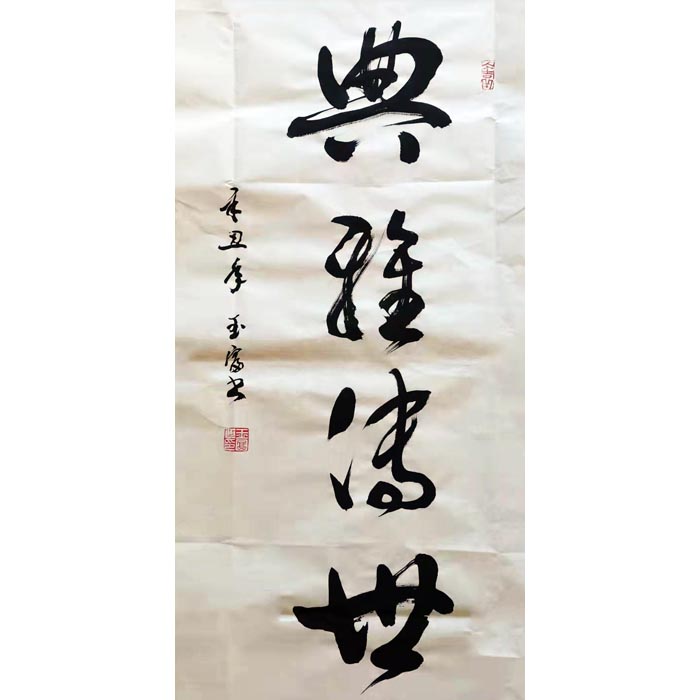 典雅传世
辛丑年 玉富书